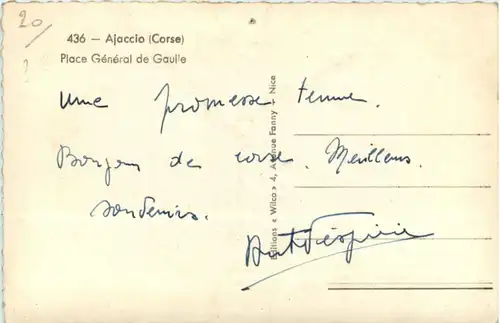 20/
436 — Ajaccio (Corse)
Place Général de Gaulle
Une promesse tenue.
Bonjour de corse. Meilleurs
souvenirs.
Editions « Wilco » 4, Avenue Fanny - Nice